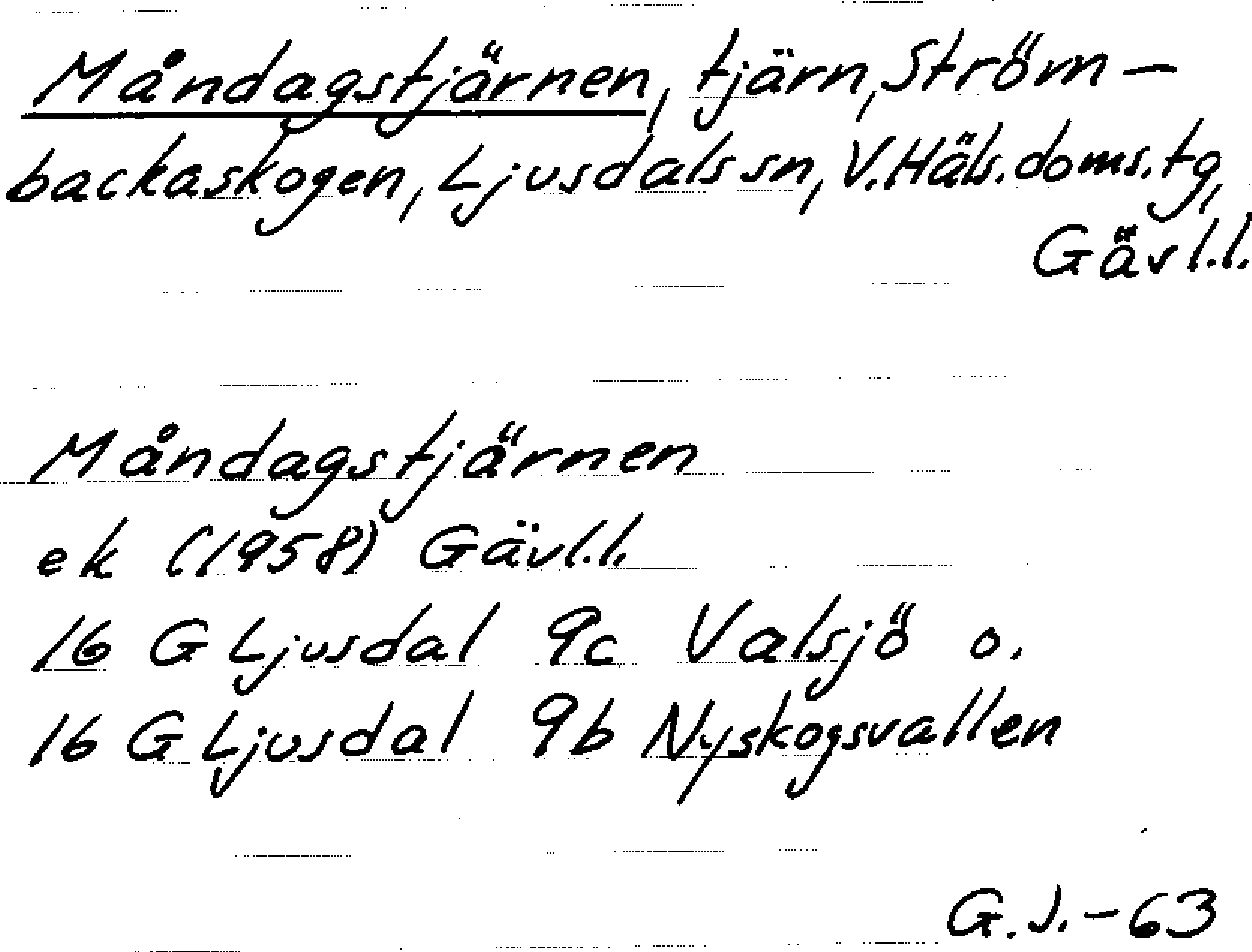 Måndagstjärnen, tjärn, Ström-
backaskogen, Ljusdals sn, V.Häls.doms.tg,
Gävl.l.
Måndagstjärnen
ek (1958) Gävl.l.
16 G Ljusdal 9c Valsjö o.
16 G Ljusdal 9b Nyskogsvallen
G.J.-63